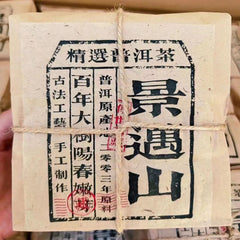 精選普洱茶
景遇山
普洱原產地二〇〇三年原料
百年大樹陽春嫩芽
古法工藝 手工制作